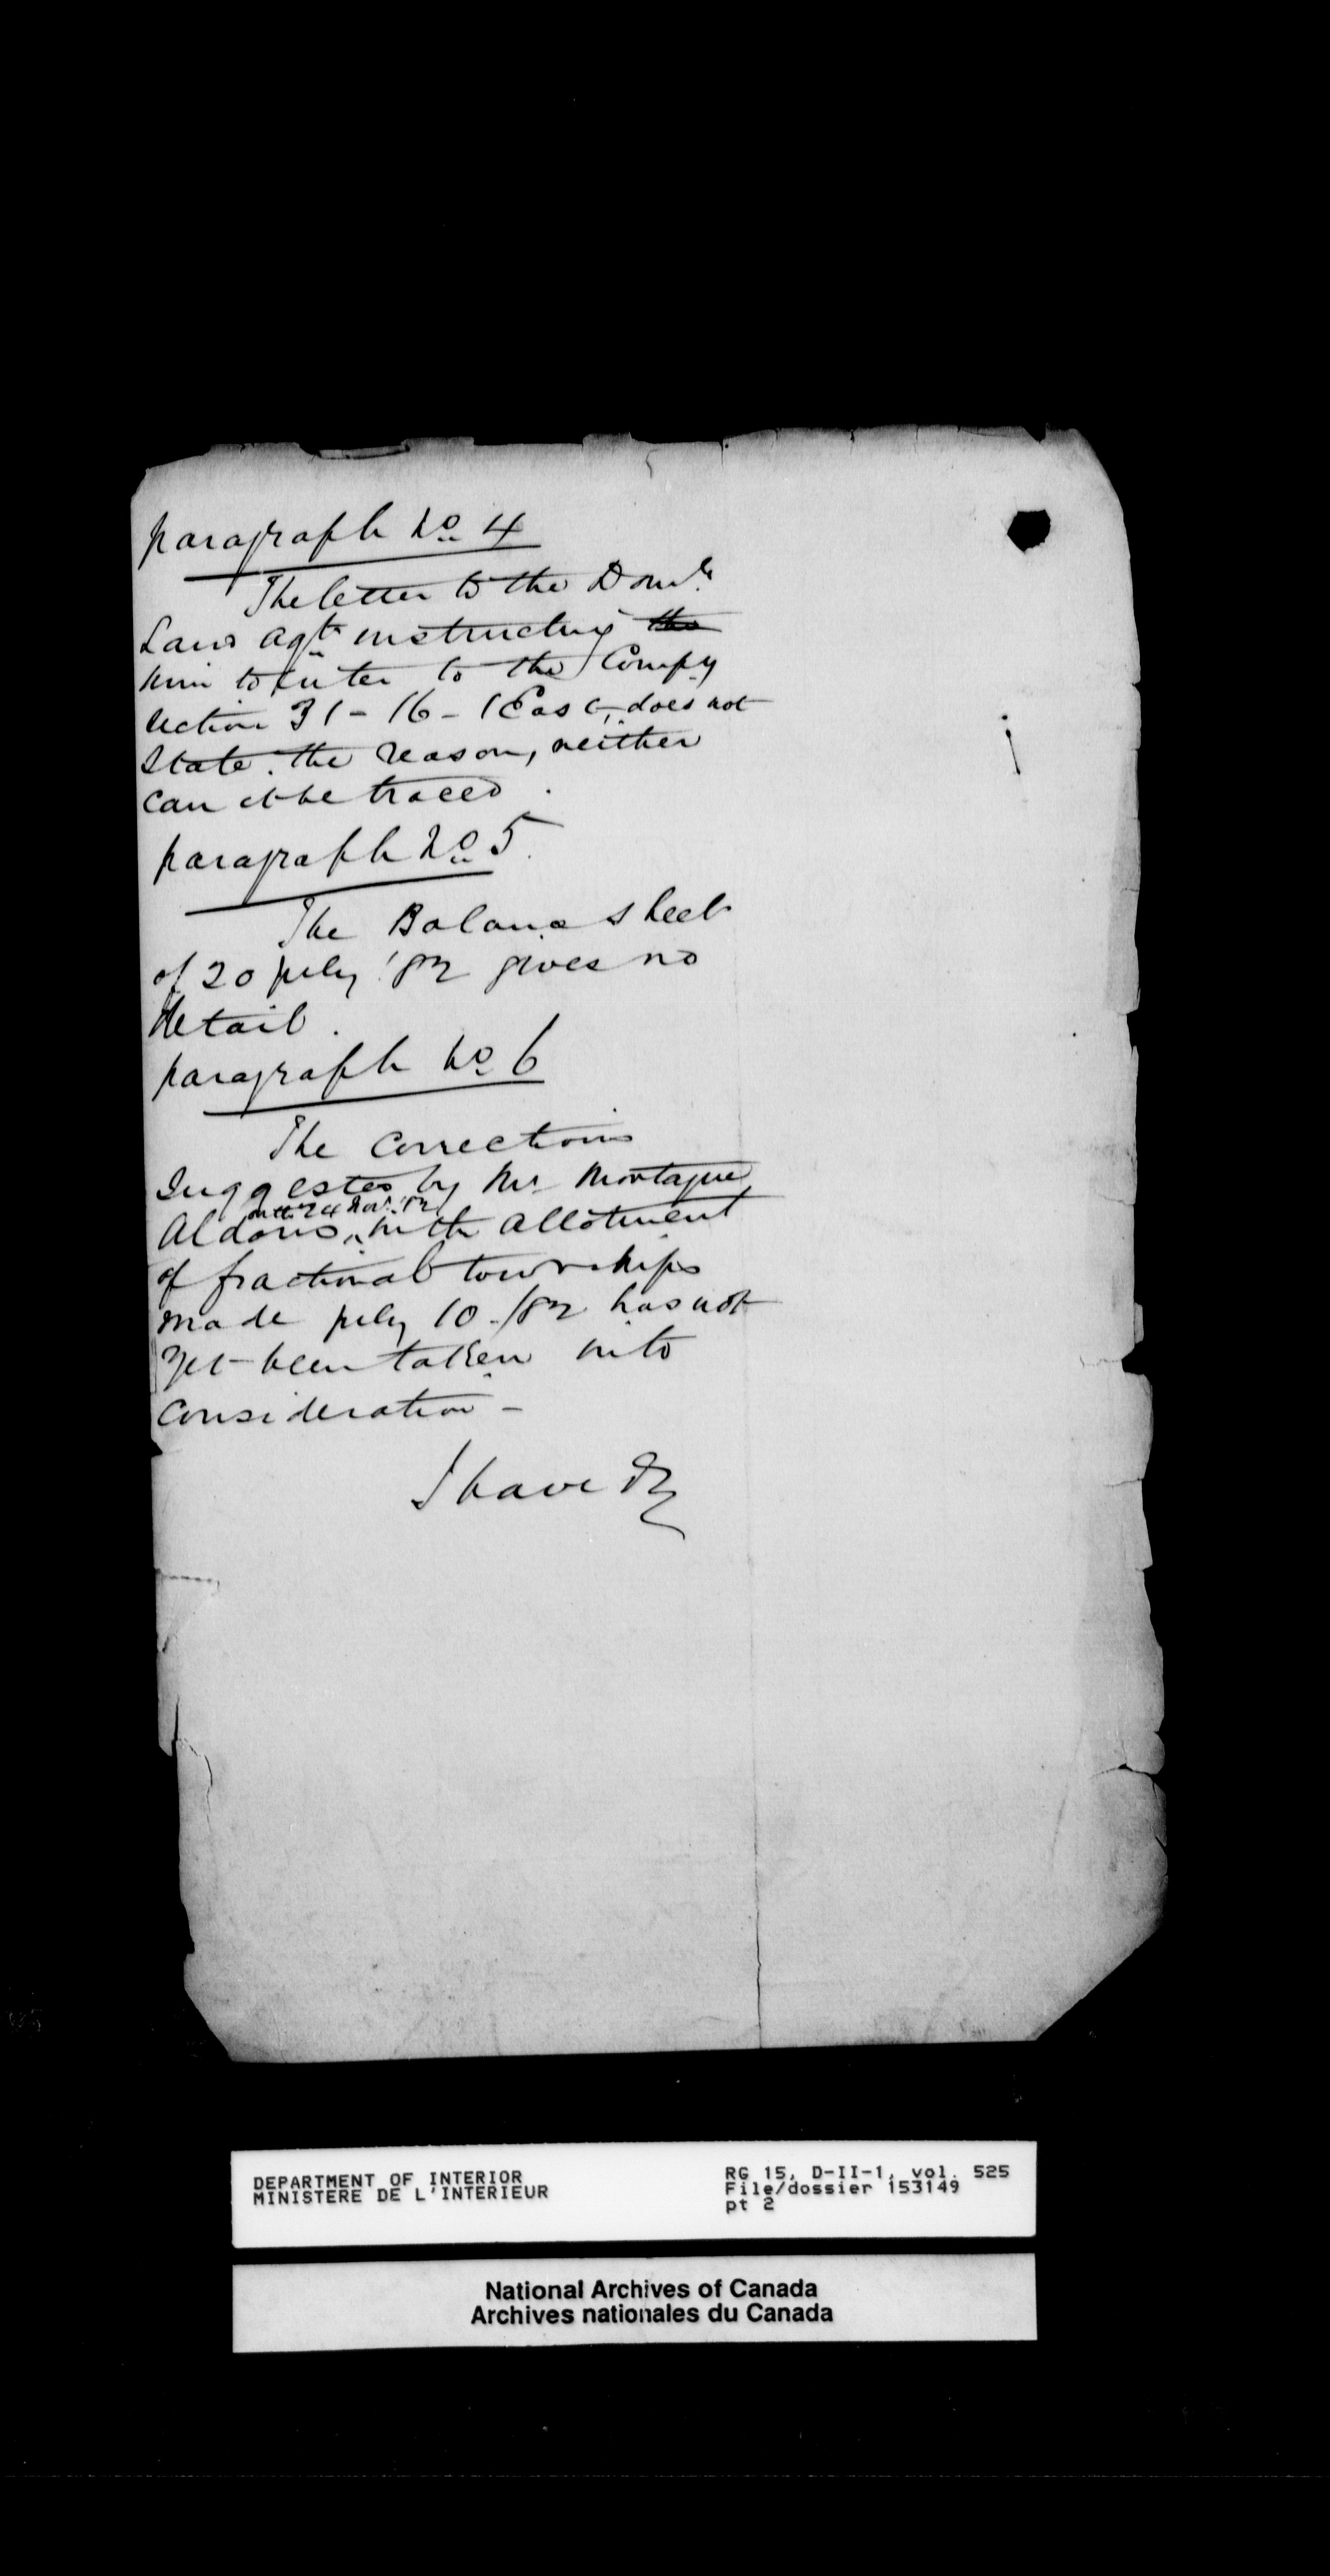 paragraph No 4
The letter to the Domn
Land Agt instructing the
him to enter to the Compy
Section 31 - 16 - 1 East, does not
State the reason, neither
can it be traced.
paragraph No 5.
The Balance sheet
of 20 July '82 gives no
detail.
paragraph No 6
The corrections
Suggested by Mr Montague
on the 24 Nov. '82
Aldous, in the allotment
of fractional townships
made July 10 /82 has not
yet been taken into
consideration -
I have &c
DEPARTMENT OF INTERIOR
MINISTERE DE L'INTERIEUR
RG 15, D-II-1, vol. 525
File/dossier 153149
pt 2
National Archives of Canada
Archives nationales du Canada